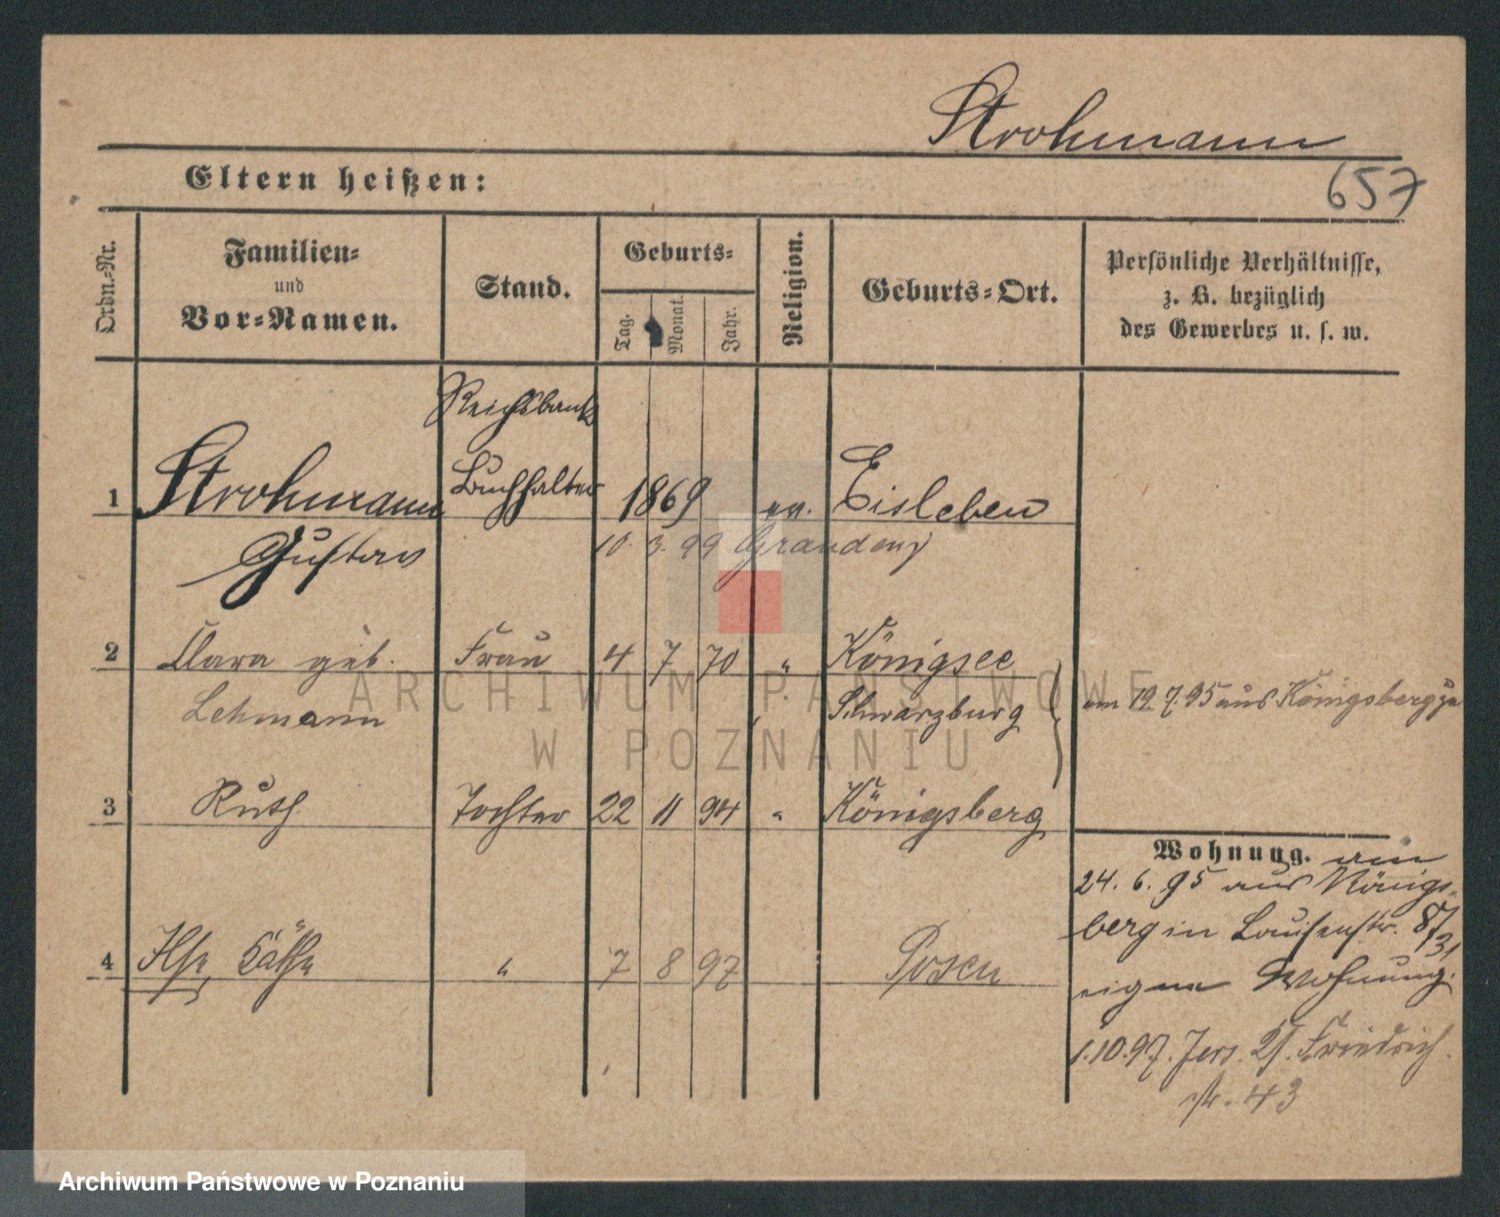 Strohmann
657
Eltern heißen:
Ordn.-Nr.
Familien-
und
Vor-Namen.
Stand.
Geburts-
Tag.
Monat.
Jahr.
Religion.
Geburts-Ort.
Persönliche Verhältnisse,
z. B. bezüglich
des Gewerbes u. s. w.
Reichsbank
1 Strohmann Buchhalter 1869 ev. Eisleben
Gustav 10. 3. 99 Graudenz
2 Clara geb. Frau 4 7 70 " Königsee
Lehmann Schwarzburg am 19.7.95 aus Königsberg zu
3 Ruth Tochter 22 11 94 " Königsberg
Wohnung. am
24. 6. 95 aus Königs-
berg in Louisenstr. 8
4 Ilse Käthe " 7 8 97 Posen
eigene Wohnung.
1.10.97. Jers. Friedrich
str. 43
ARCHIWUM PAŃSTWOWE
W POZNANIU
Archiwum Państwowe w Poznaniu